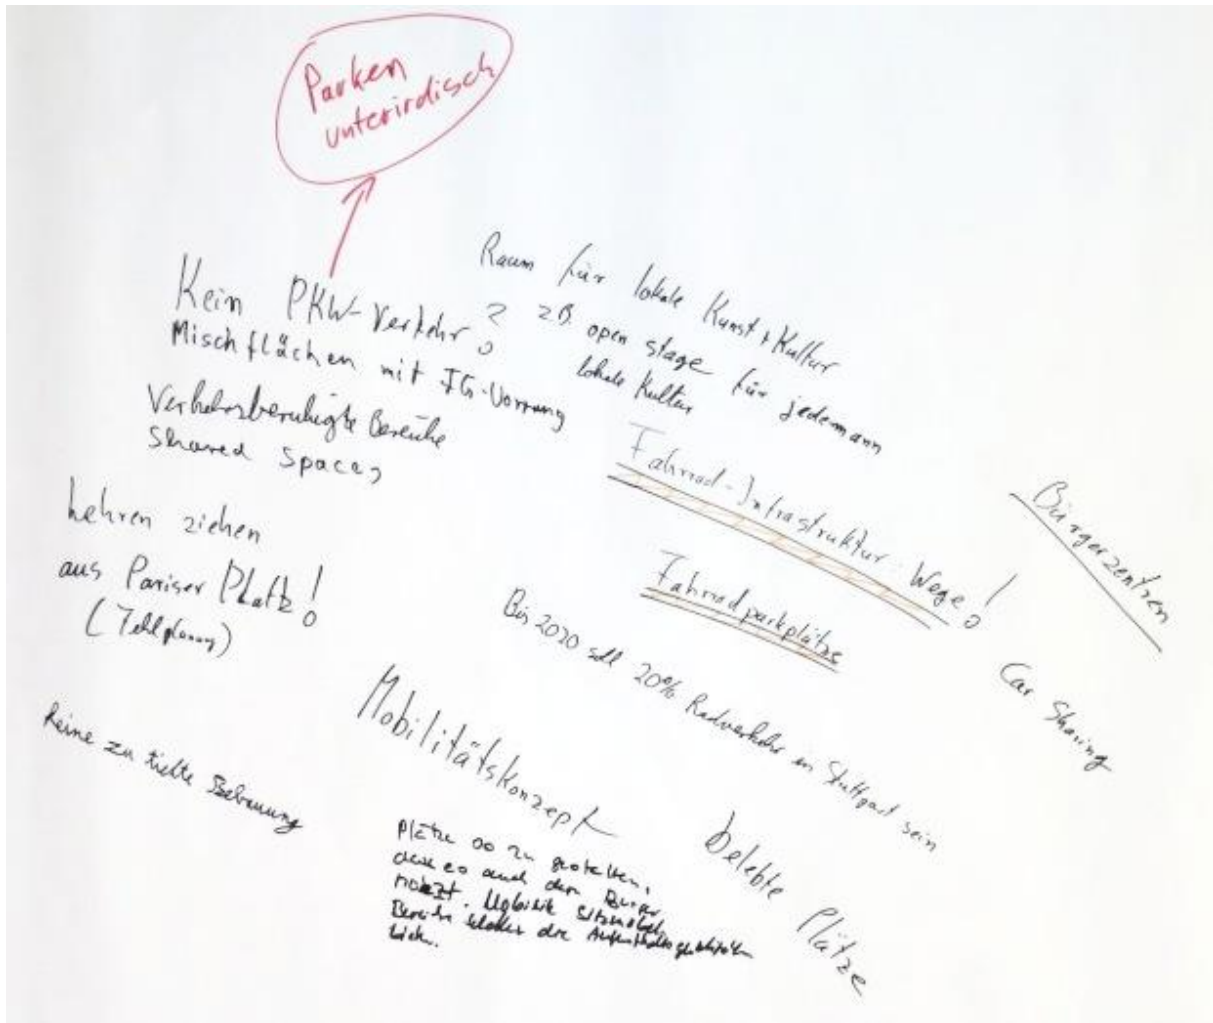 Parken
unterirdisch
Kein PKW-Verkehr
Mischflächen mit FG-Vorrang
Verkehrsberuhigte Bereiche
Shared Spaces
Raum für lokale Kunst + Kultur
z.B. open stage für jedermann
lokale Kultur
Fahrrad-Infrastruktur: Wege!
Fahrradparkplätze
Bürgerzentren
Car Sharing
Lehren ziehen
aus Pariser Platz!
(Fehlplanung)
Bis 2020 soll 20% Radverkehr in Stuttgart sein
Keine zu Bebauung
Mobilitätskonzept
Plätze so zu gestalten,
dass es auch den Bürger
Bereiche die
belebte Plätze